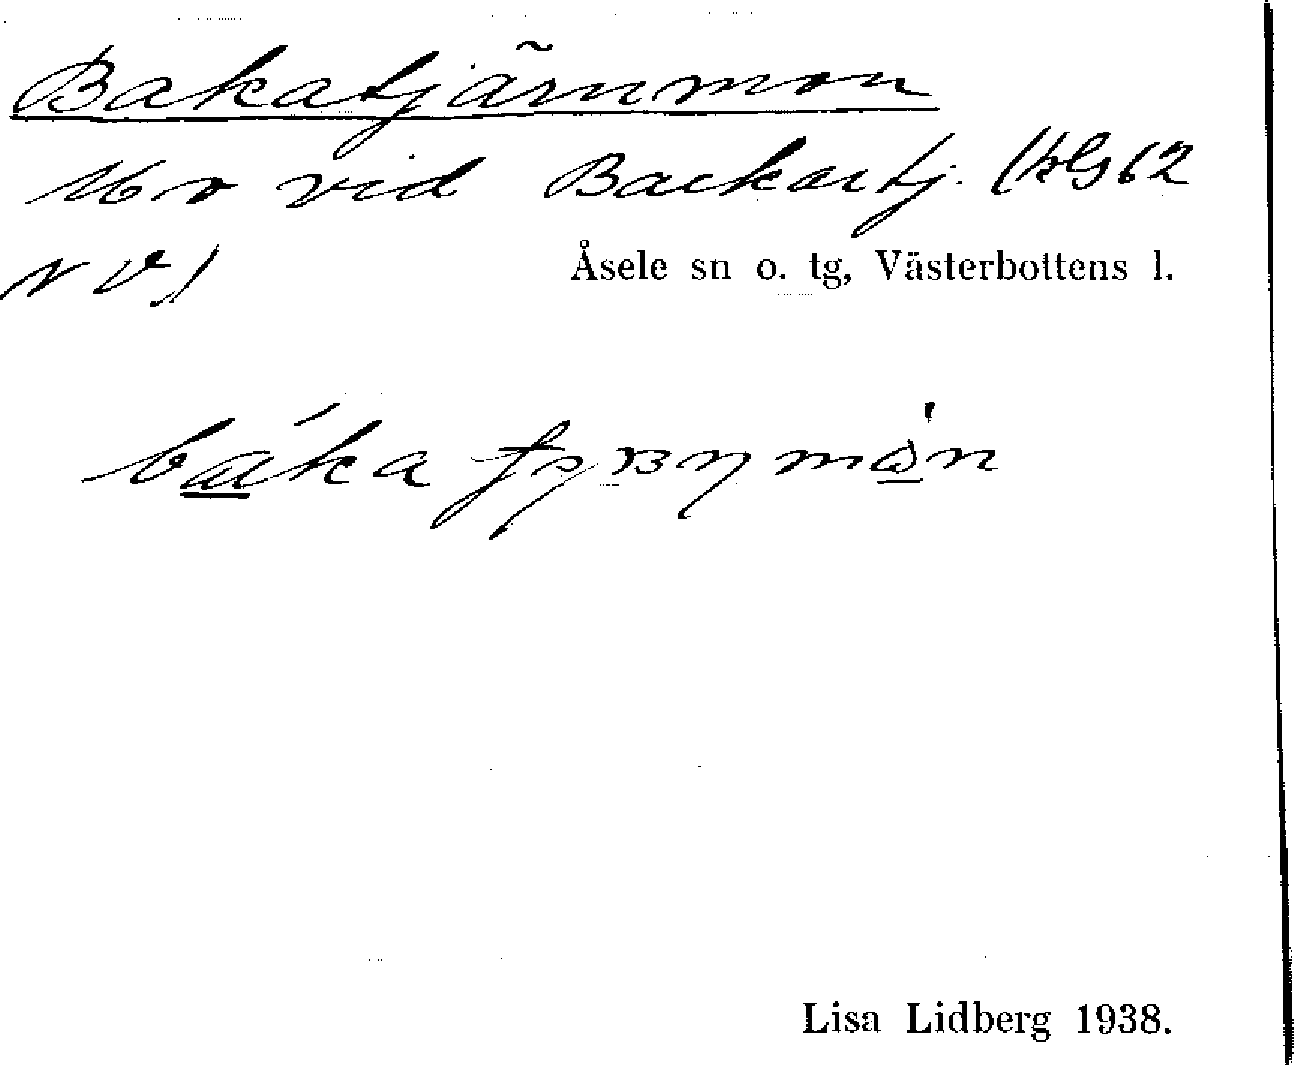 Bakatjärnmon
Mo vid Backatj. (kG62
N V)
Åsele sn o. tg, Västerbottens l.
Lisa Lidberg 1938.